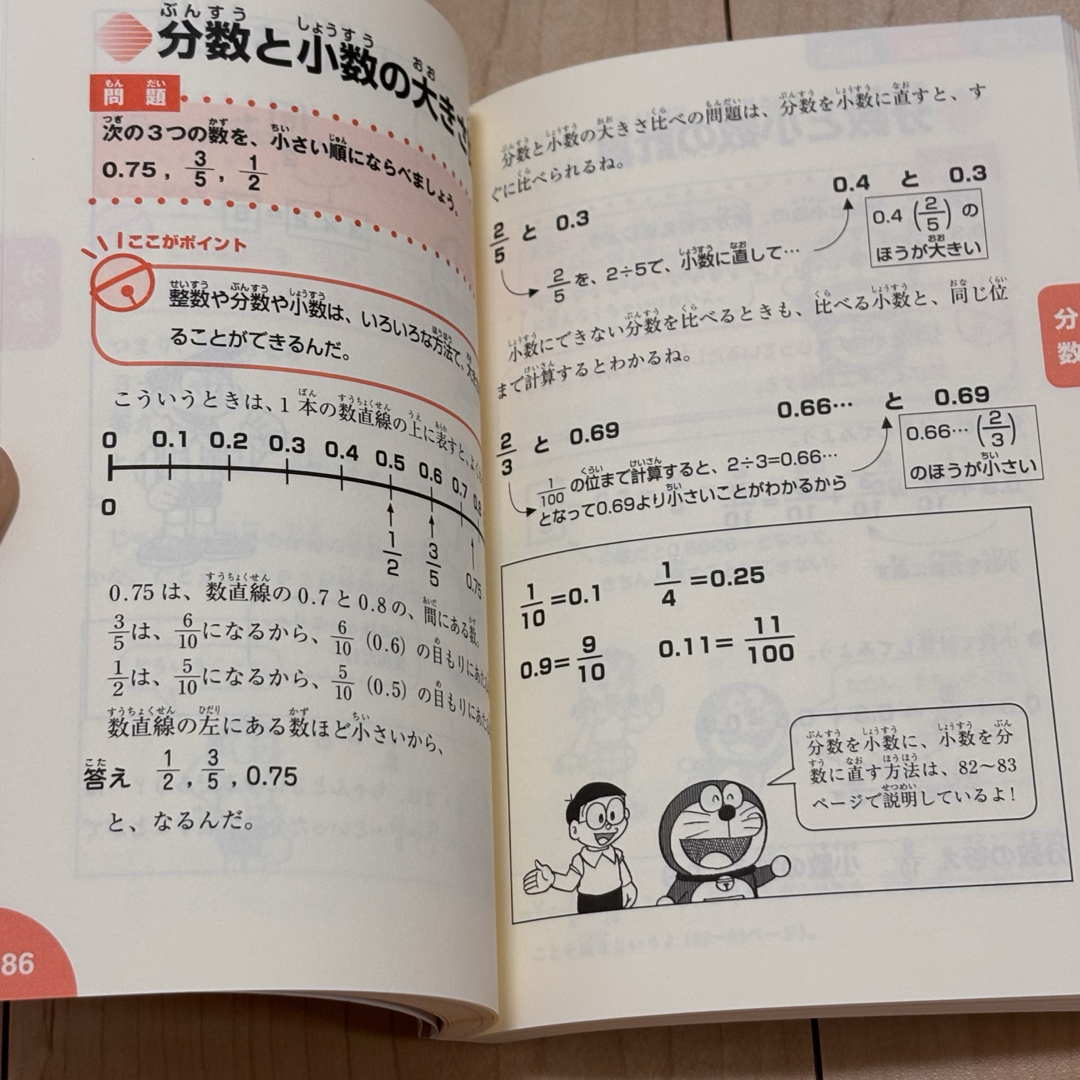 分数と小数の大きさ
問題
次の3つの数を、小さい順にならべましょう。
0.75 , 3/5 , 1/2
ここがポイント
整数や分数や小数は、いろいろな方法で、
ることができるんだ。
こういうときは、1本の数直線の上に表すと、
0 0.1 0.2 0.3 0.4 0.5 0.6 0.7 0.8
0 1/2 3/5 0.75
0.75は、数直線の0.7と0.8の、間にある数。
3/5は、6/10になるから、6/10(0.6)の目もりにあた
1/2は、5/10になるから、5/10(0.5)の目もりにあた
数直線の左にある数ほど小さいから、
答え 1/2 , 3/5 , 0.75
と、なるんだ。
86
分数と小数の大きさ比べの問題は、分数を小数に直すと、す
ぐに比べられるね。
2/5 と 0.3
2/5を、2÷5で、小数に直して…
0.4 と 0.3
0.4(2/5)の
ほうが大きい
小数にできない分数を比べるときも、比べる小数と、同じ位
まで計算するとわかるね。
2/3 と 0.69
1/100の位まで計算すると、2÷3=0.66…
となって0.69より小さいことがわかるから
0.66… と 0.69
0.66…(2/3)
のほうが小さい
1/10=0.1 1/4=0.25
0.9=9/10 0.11=11/100
分数を小数に、小数を分
数に直す方法は、82〜83
ページで説明しているよ!
分
数